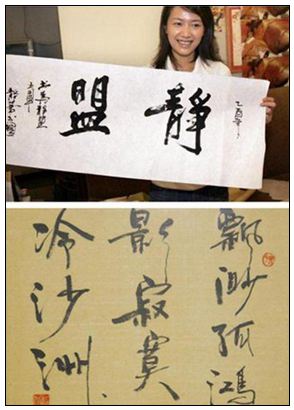 乙酉年
靜盟
飄渺孤鴻
影寂寞
冷沙洲